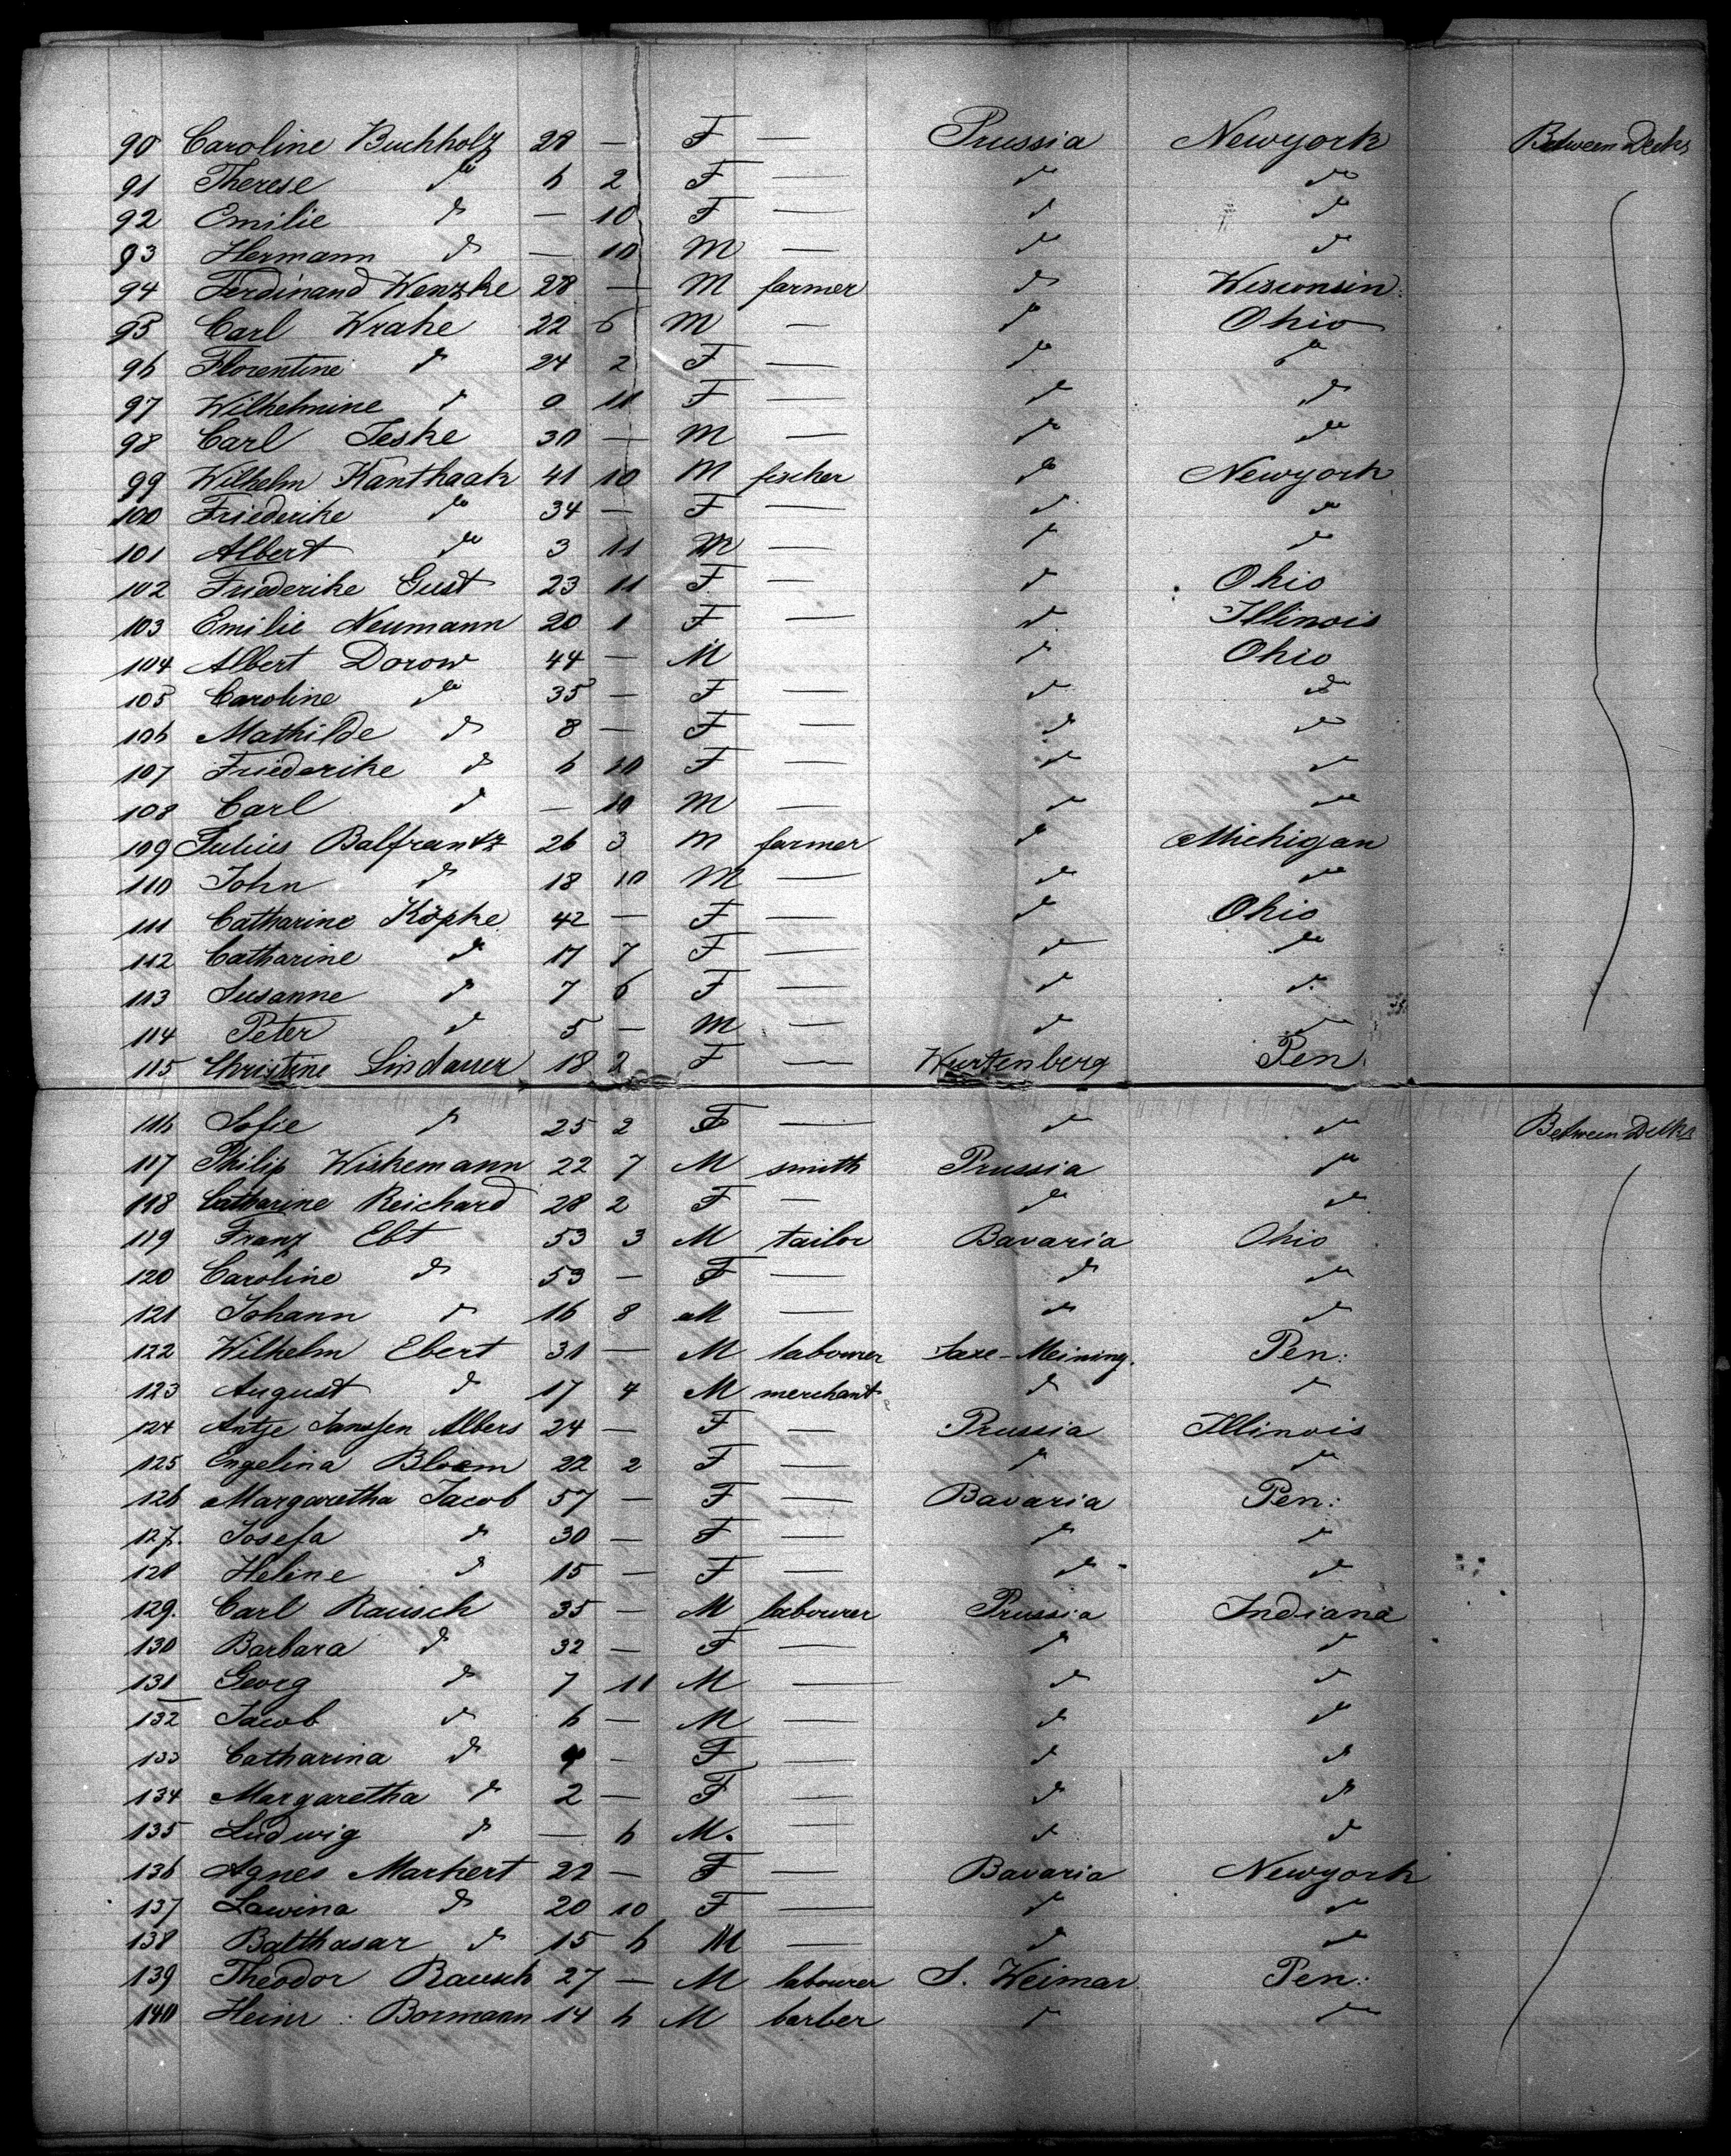 90 Caroline Buchholz 28 — F — Prussia Newyork Between Decks
91 Therese do 6 2 F — do do
92 Emilie do — 10 F — do do
93 Hermann do — 10 M — do do
94 Ferdinand Wenzke 28 — M farmer do Wisconsin
95 Carl Wrahe 22 6 M — do Ohio
96 Florentine do 24 2 F — do do
97 Wilhelmine do 0 11 F — do do
98 Carl Jeske 30 — M — do do
99 Wilhelm Kanthaak 41 10 M fischer do Newyork
100 Friederike do 34 — F — do do
101 Albert do 3 11 M — do do
102 Friederike Gust 23 11 F — do Ohio
103 Emilie Neumann 20 1 F — do Illinois
104 Albert Dorow 44 — M do Ohio
105 Caroline do 35 — F — do do
106 Mathilde do 8 — F — do do
107 Friederike do 6 10 F — do do
108 Carl do — 10 M — do do
109 Julius Balfrantz 26 3 M farmer do Michigan
110 John do 18 10 M — do do
111 Catharine Köpke 42 — F — do Ohio
112 Catharine do 17 7 F — do do
113 Susanne do 7 6 F — do do
114 Peter do 5 — M — do do
115 Christine Lindauer 18 2 F — Wurtenberg Pen
116 Sofie do 25 2 F — do do Between Decks
117 Philip Wiskemann 22 7 M smith Prussia do
118 Catharine Reichard 28 2 F — do do
119 Franz Ebt 53 3 M tailor Bavaria Ohio
120 Caroline do 53 — F — do do
121 Johann do 16 8 M — do do
122 Wilhelm Ebert 31 — M labourer Saxe-Meining. Pen:
123 August do 17 4 M merchant do do
124 Antje Janssen Albers 24 — F — Prussia Illinois
125 Engelina Bloem 22 2 F — do do
126 Margaretha Jacob 57 — F — Bavaria Pen:
127. Josefa do 30 — F — do do
128 Heline do 15 — F — do do
129. Carl Rausch 35 — M labourer Prussia Indiana
130 Barbara do 32 — F — do do
131 Georg do 7 11 M — do do
132 Jacob do 6 — M — do do
133 Catharina do 4 — F — do do
134 Margaretha do 2 — F — do do
135 Ludwig do — 6 M. — do do
136 Agnes Markert 22 — F — Bavaria Newyork
137 Lawina do 20 10 F — do do
138 Balthasar do 15 6 M — do do
139 Theodor Rausch 27 — M labourer S. Weimar Pen:
140 Heinr: Bormann 14 6 M barber do do